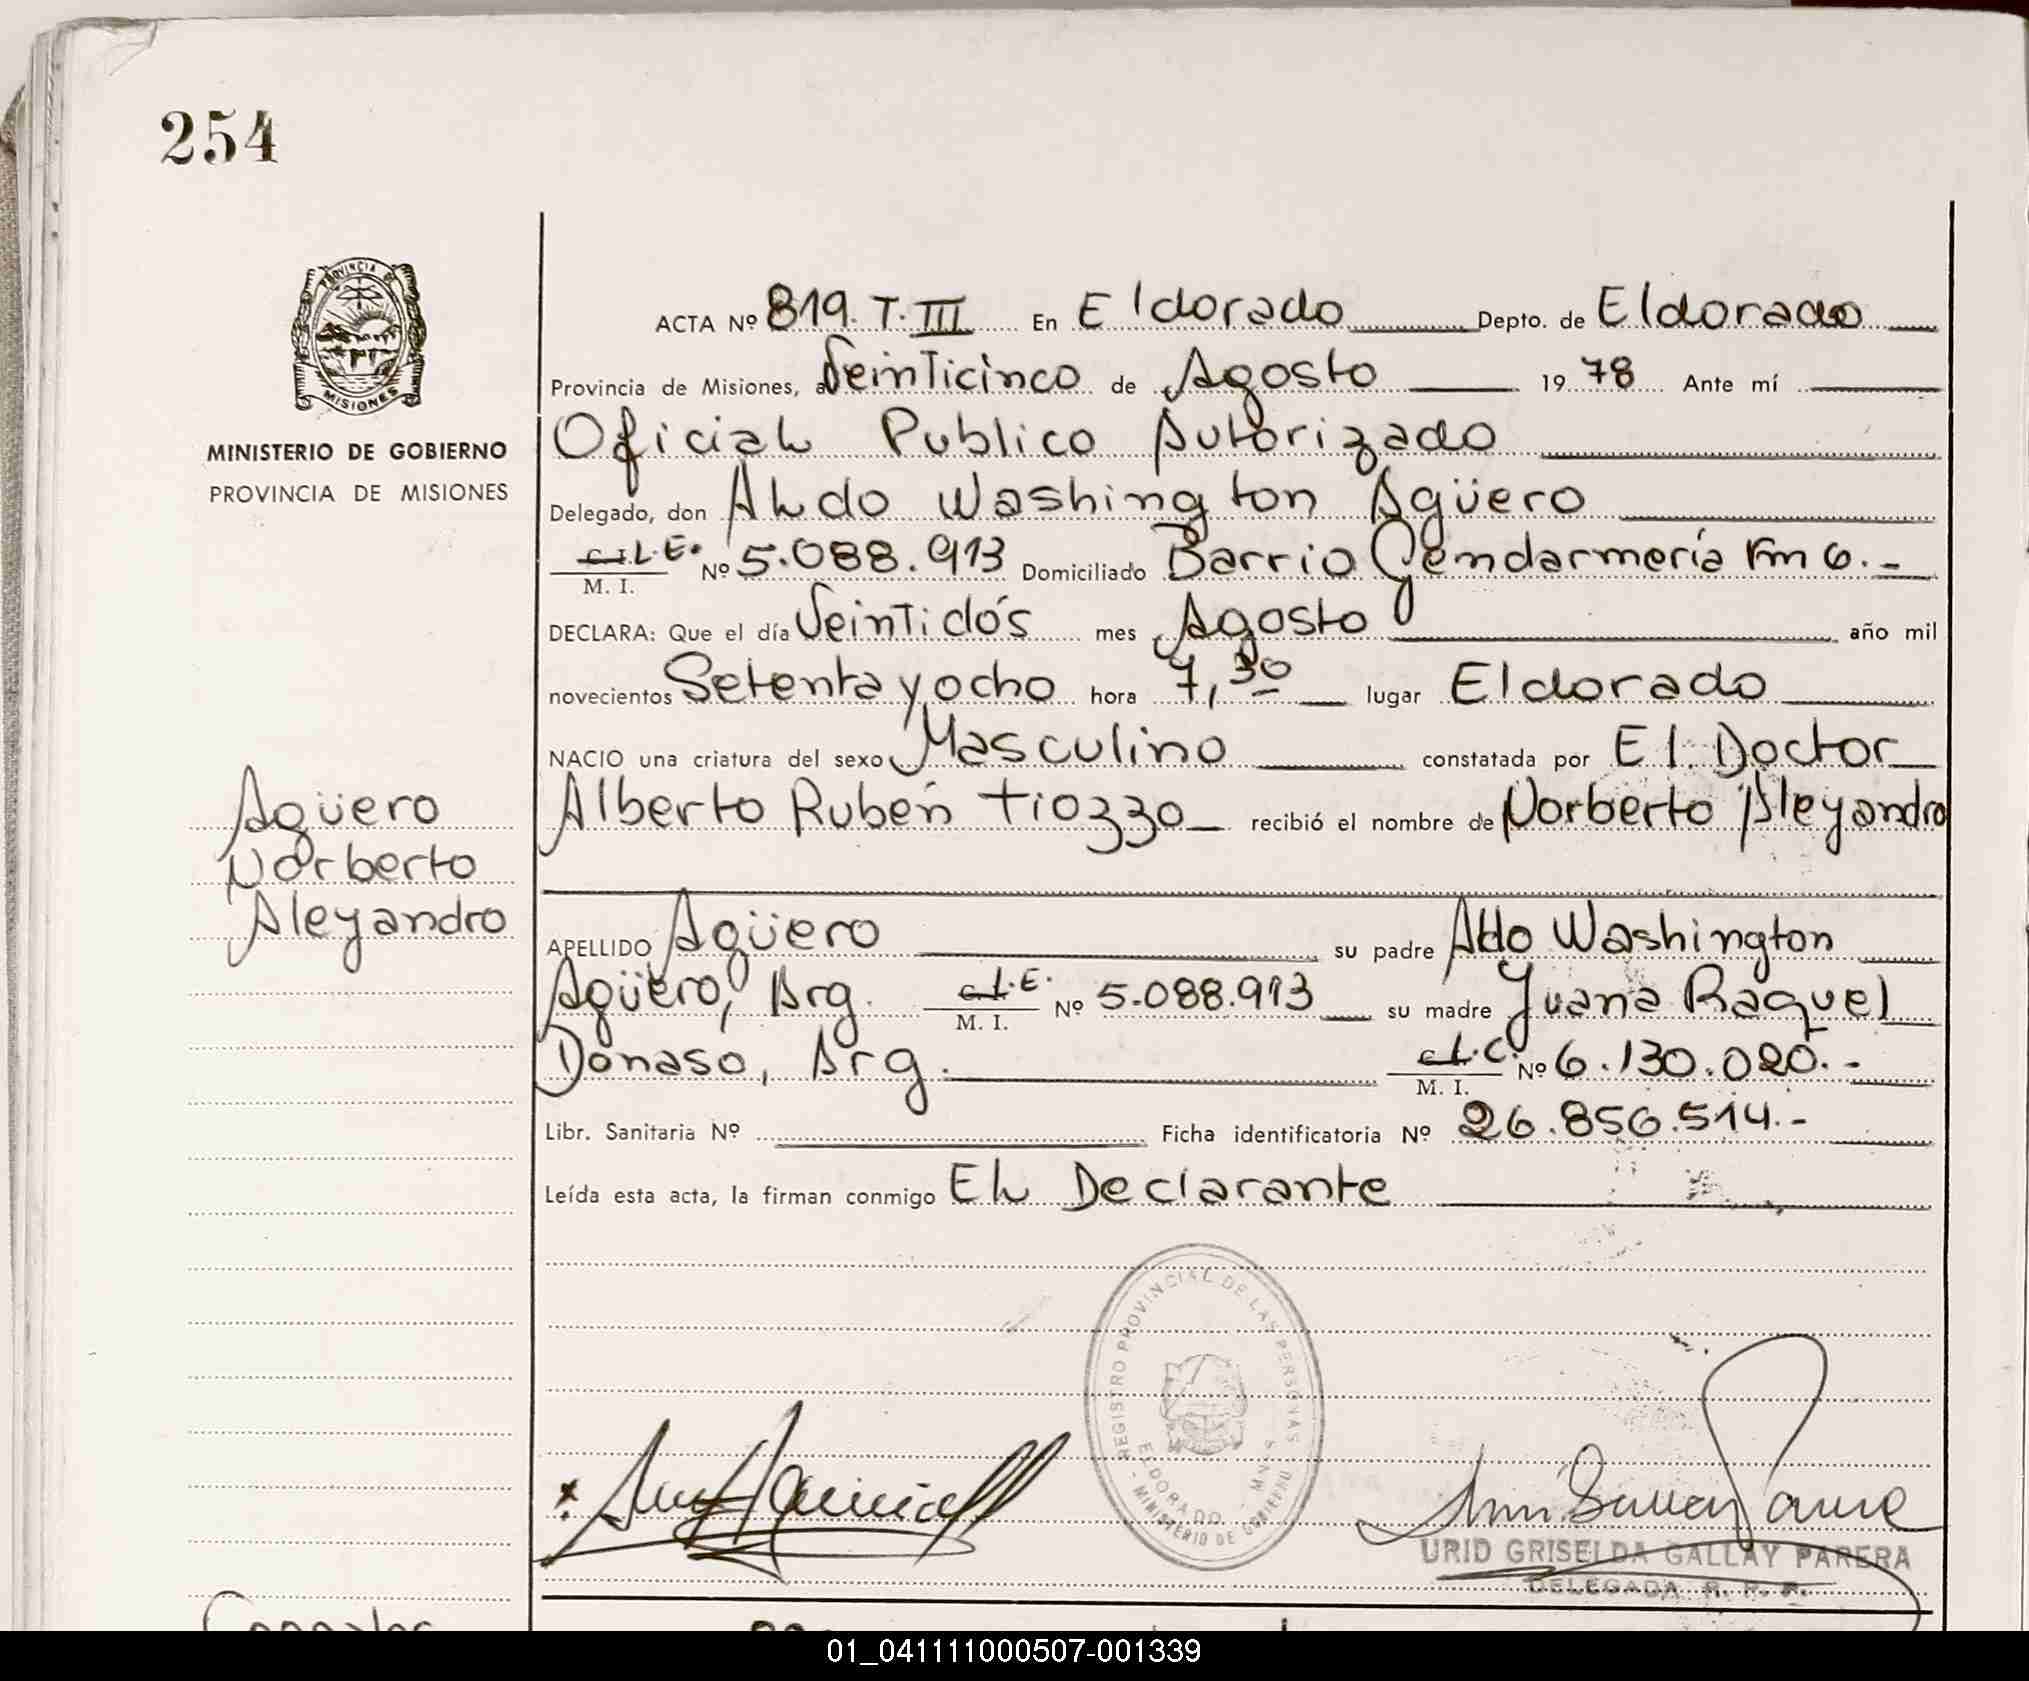 254
PROVINCIA DE
MISIONES
MINISTERIO DE GOBIERNO
PROVINCIA DE MISIONES
ACTA Nº 819. T. III En Eldorado Depto. de Eldorado
Provincia de Misiones, a Veinticinco de Agosto 19 78 Ante mí
Oficial Publico Autorizado
Delegado, don Aldo Washington Agüero
C.I. L.E. Nº 5.088.913 Domiciliado Barrio Gendarmería Km 6.-
M. I.
DECLARA: Que el día Veintidós mes Agosto año mil
novecientos Setenta y ocho hora 7,30 lugar Eldorado
NACIO una criatura del sexo Masculino constatada por El Doctor
Alberto Rubén Tiozzo recibió el nombre de Norberto Aleyandro
Agüero
Norberto
Aleyandro
APELLIDO Agüero su padre Aldo Washington
Agüero, Arg. C.I. L.E. Nº 5.088.913 su madre Juana Raquel
M. I.
Donaso, Arg. C.I. L.C. Nº 6.130.020.-
M. I.
Libr. Sanitaria Nº Ficha identificatoria Nº 26.856.514.-
Leída esta acta, la firman conmigo El Declarante
REGISTRO PROVINCIAL DE LAS PERSONAS
ELDORADO - MNES
- MINISTERIO DE GOBIERNO
URID GRISELDA GALLAY PARERA
DELEGADA R. P. P.
01_041111000507-001339